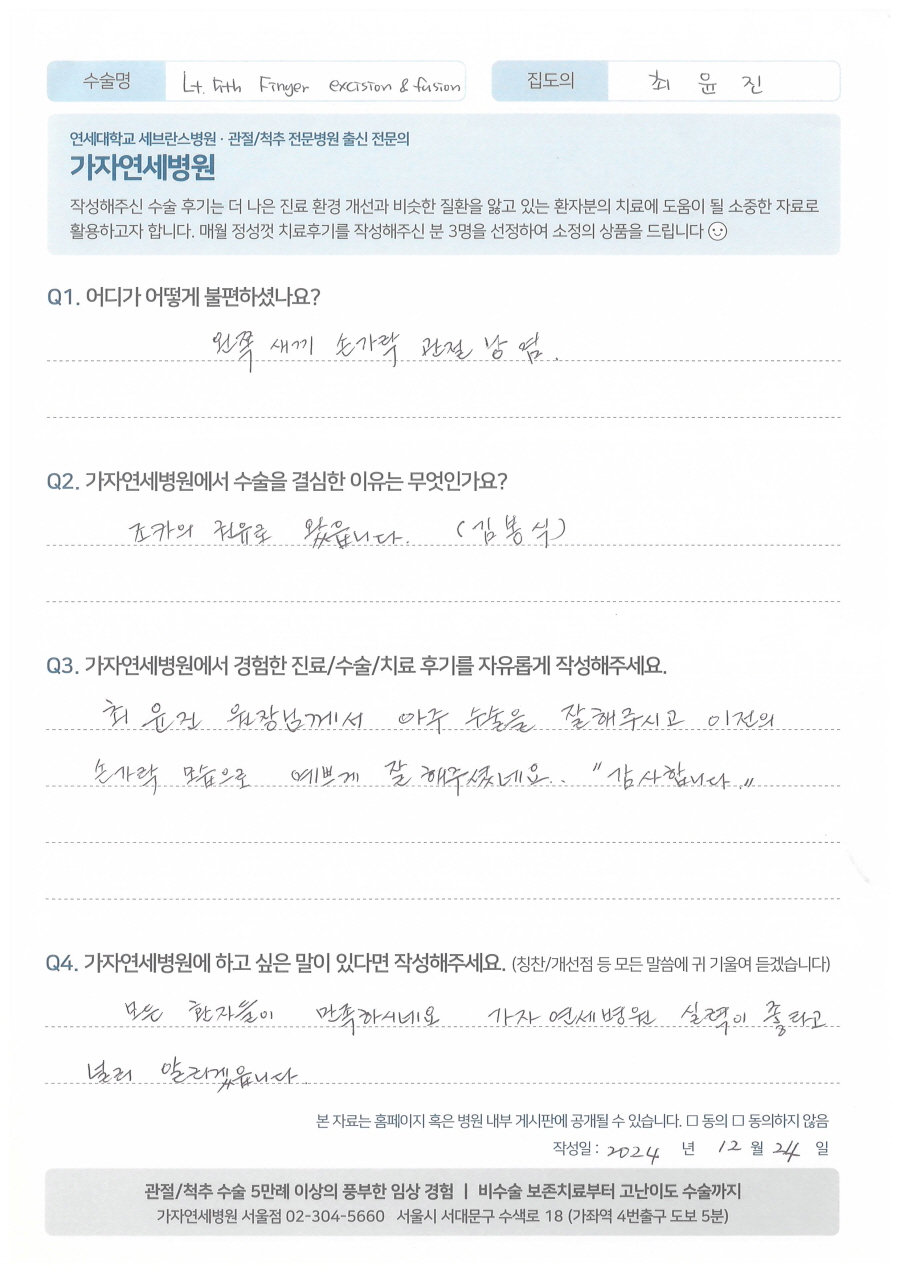 수술명 Lt. 5th Finger excision & fusion 집도의 최 윤 진
연세대학교 세브란스병원 · 관절/척추 전문병원 출신 전문의
가자연세병원
작성해주신 수술 후기는 더 나은 진료 환경 개선과 비슷한 질환을 앓고 있는 환자분의 치료에 도움이 될 소중한 자료로
활용하고자 합니다. 매월 정성껏 치료후기를 작성해주신 분 3명을 선정하여 소정의 상품을 드립니다
Q1. 어디가 어떻게 불편하셨나요?
왼쪽 새끼 손가락 관절 낭 염.
Q2. 가자연세병원에서 수술을 결심한 이유는 무엇인가요?
조카의 권유로 왔읍니다. (김봉식)
Q3. 가자연세병원에서 경험한 진료/수술/치료 후기를 자유롭게 작성해주세요.
최 윤진 원장님께서 아주 수술을 잘해주시고 이전의
손가락 모습으로 예쁘게 잘 해주셨네요.. "감사합니다."
Q4. 가자연세병원에 하고 싶은 말이 있다면 작성해주세요. (칭찬/개선점 등 모든 말씀에 귀 기울여 듣겠습니다)
모든 환자들이 만족하시네요 가자 연세병원 실력이 좋다고
널리 알리겠읍니다.
본 자료는 홈페이지 혹은 병원 내부 게시판에 공개될 수 있습니다. □ 동의 □ 동의하지 않음
작성일 : 2024 년 12 월 24 일
관절/척추 수술 5만례 이상의 풍부한 임상 경험 | 비수술 보존치료부터 고난이도 수술까지
가자연세병원 서울점 02-304-5660 서울시 서대문구 수색로 18 (가좌역 4번출구 도보 5분)